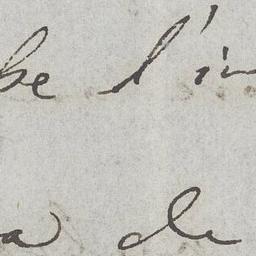 be l'in
a de